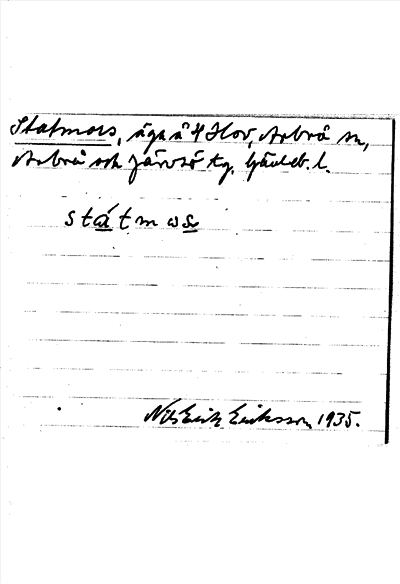 Statmors, äga å 4 Hov, Arbrå sn,
Arbrå och Järvsö tg. Gävleb. l.
státmωs
Nils Erik Eriksson 1935.